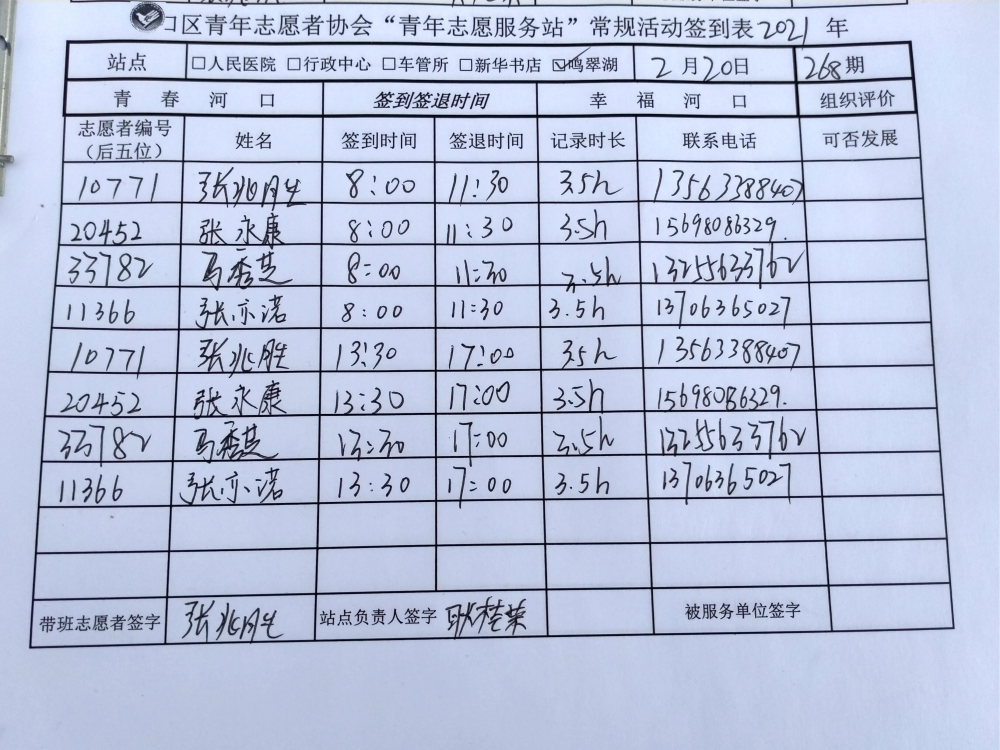 口区青年志愿者协会“青年志愿服务站”常规活动签到表2021年
站点 □人民医院 □行政中心 □车管所 □新华书店 ☑鸣翠湖 2月20日 268期
青春河口 签到签退时间 幸福河口 组织评价
志愿者编号（后五位） 姓名 签到时间 签退时间 记录时长 联系电话 可否发展
10771 张兆胜 8:00 11:30 3.5h 13563388407
20452 张永康 8:00 11:30 3.5h 15698086329.
33782 马秀芝 8:00 11:30 3.5h 13255633762
11366 张亦诺 8:00 11:30 3.5h 13706365027
10771 张兆胜 13:30 17:00 3.5h 13563388407
20452 张永康 13:30 17:00 3.5h 15698086329.
33782 马秀芝 13:30 17:00 3.5h 13255633762
11366 张亦诺 13:30 17:00 3.5h 13706365027
带班志愿者签字 张兆胜 站点负责人签字 耿桂荣 被服务单位签字